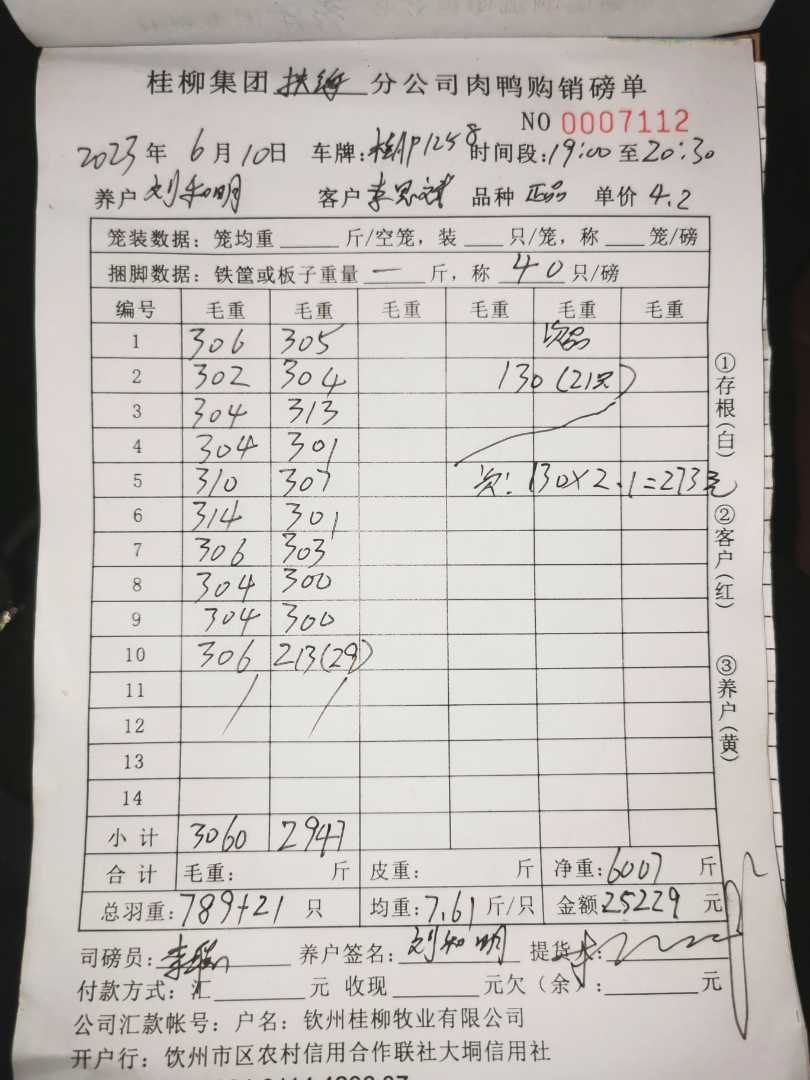 桂柳集团 扶绥 分公司肉鸭购销磅单
NO 0007112
2023年 6月 10日 车牌:桂AP1258 时间段:19:00至20:30
养户 刘和明 客户 李思斌 品种 正品 单价 4.2
笼装数据：笼均重 斤/空笼，装 只/笼，称 笼/磅
捆脚数据：铁筐或板子重量 一 斤，称 40 只/磅
编号 毛重 毛重 毛重 毛重 毛重 毛重
1 306 305 次品
2 302 304 130(21只)
3 304 313
4 304 301
5 310 307 次: 130×2.1=273元
6 314 301
7 306 303
8 304 300
9 304 300
10 306 213(29)
11 / /
12
13
14
小计 3060 2947
合计 毛重: 斤 皮重: 斤 净重:6007 斤
总羽重:789+21 只 均重:7.61 斤/只 金额:25229 元
司磅员: 养户签名: 刘和明 提货人:
付款方式：汇 元 收现 元欠（余）: 元
公司汇款帐号：户名：钦州桂柳牧业有限公司
开户行：饮州市区农村信用合作联社大垌信用社
①存根(白)
②客户(红)
③养户(黄)